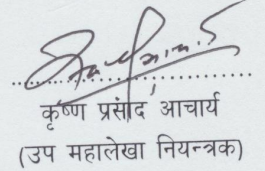 कृष्ण प्रसाद आचार्य
(उप महालेखा नियन्त्रक)